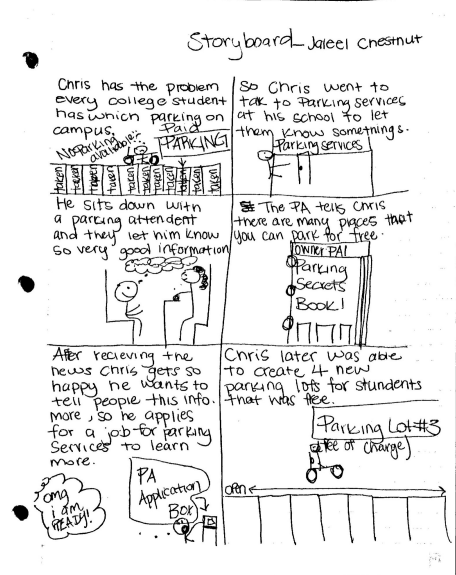 Storyboard - Jaleel Chestnut
Chris has the problem
every college student
has which parking on
campus.
No Parking
available!!
Paid
PARKING
taken taken taken taken taken taken taken taken taken taken
So Chris went to
talk to Parking services
at his school to let
them know somethings.
Parking services
He sits down with
a parking attendent
and they let him know
so very good information
The PA tells Chris
there are many places that
you can park for free.
owner PA1
Parking
Secrets
Book 1
After recieving the
news Chris gets so
happy he wants to
tell people this info.
more, so he applies
for a job for parking
Services to learn
more.
omg
i am
READY!
PA
Application
Box
Chris later was able
to create 4 new
parking lots for stundents
that was free.
Parking Lot #3
free of charge
open